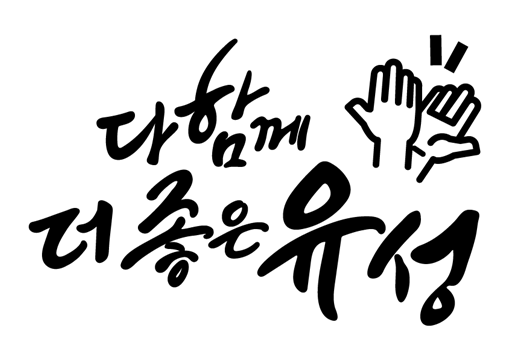 다함께
더 좋은 유성